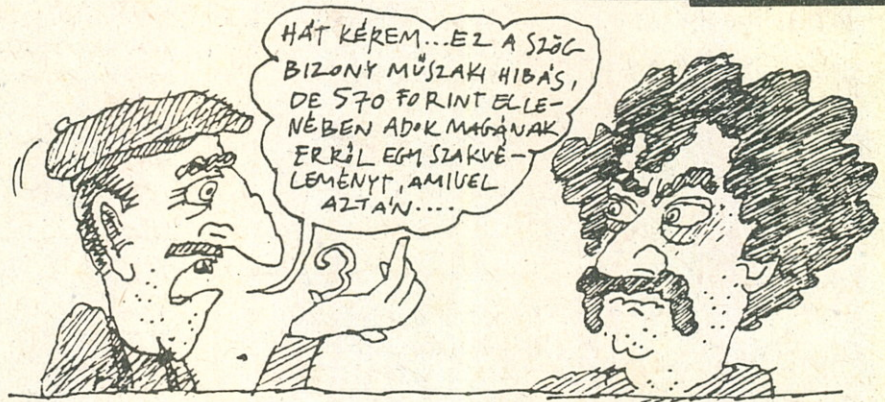 HÁT KÉREM...EZ A SZÖG
BIZONY MŰSZAKI HIBÁS,
DE 570 FORINT ELLE-
NÉBEN ADOK MAGÁNAK
ERRŐL EGY SZAKVÉ-
LEMÉNYT, AMIVEL
AZTÁN....